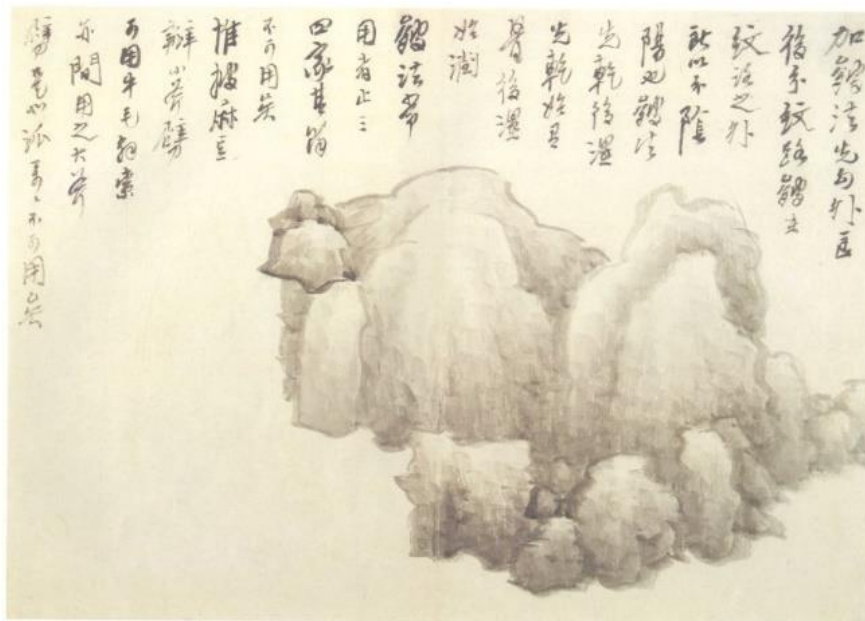 加皴法先勾外匡
後分紋路皴在
紋路之外
所以分陰
陽也皴法
先乾後濕
先乾始有
骨後濕
始潤
皴法常
用者止三
四家其餘
不可用矣
惟披麻豆
瓣小斧劈
可用牛毛解索
亦間用之大斧
劈是北派萬々不可用矣